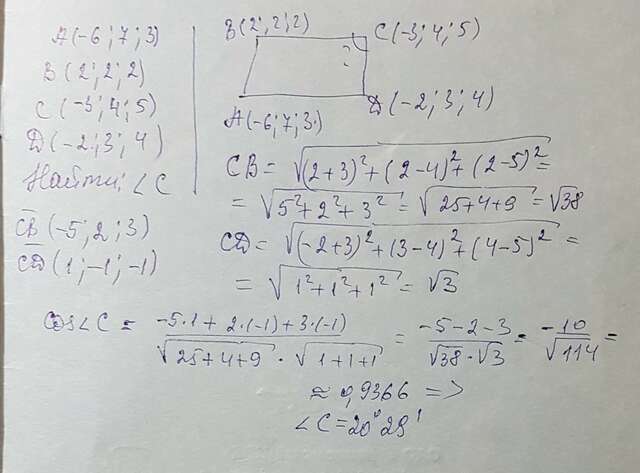 A(-6; 7; 3)
B(2; 2; 2)
C(-3; 4; 5)
D(-2; 3; 4)
Найти: ∠C
CB(-5; 2; 3)
CD(1; -1; -1)
B(2; 2; 2)
C(-3; 4; 5)
?
A(-6; 7; 3)
D(-2; 3; 4)
CB = √(2+3)²+(2-4)²+(2-5)² =
= √5²+2²+3² = √25+4+9 = √38
CD = √(-2+3)²+(3-4)²+(4-5)² =
= √1²+1²+1² = √3
Cos∠C = -5·1+2·(-1)+3·(-1) / √25+4+9 · √1+1+1 = -5-2-3 / √38·√3 = -10 / √114 =
≈ 0,9366 =>
∠C = 20°29'